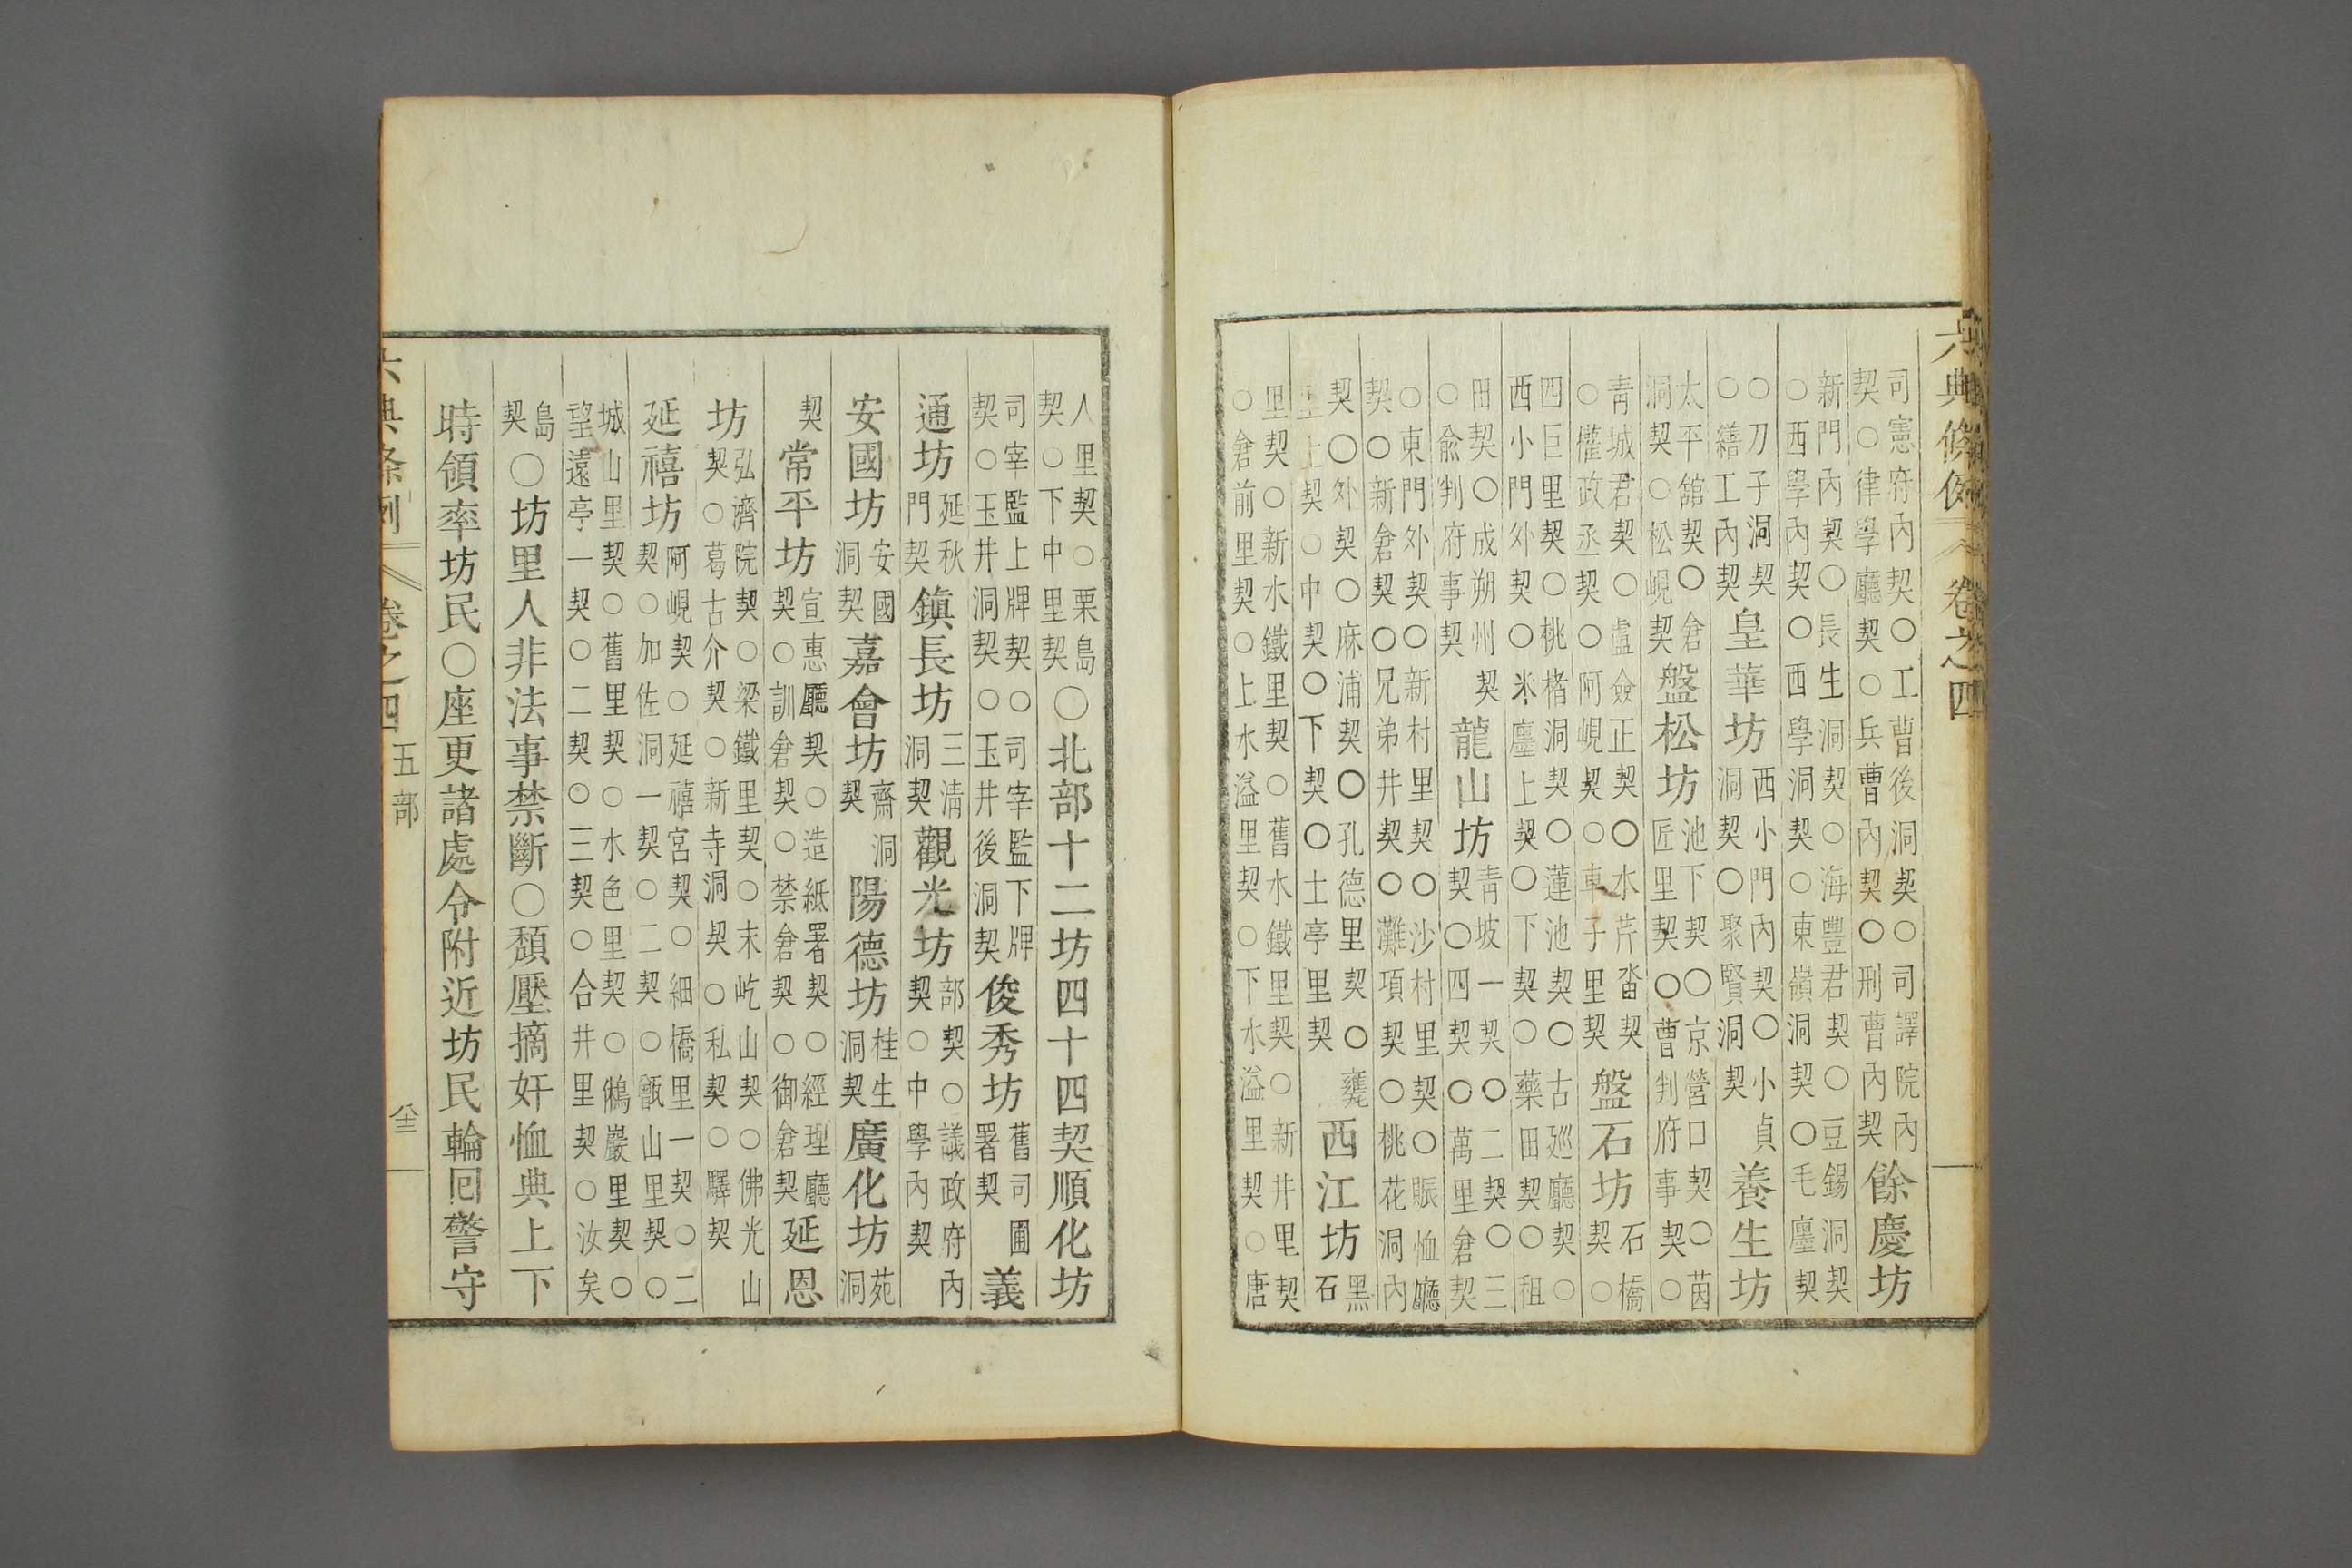 六典條例 卷之四
司憲府內契○工曹後洞契○司譯院內
契○律學廳契○兵曹內契○刑曹內契
餘慶坊
新門內契○長生洞契○海豐君契○豆錫洞契
○西學內契○西學洞契○東嶺洞契○毛廛契
○刀子洞契
○繕工內契
皇華坊
西小門內契○小貞
洞契○聚賢洞契
養生坊
太平舘契○倉
洞契○松峴契
盤松坊
池下契○京營口契○茵
匠里契○曹判府事契○
靑城君契○盧僉正契○水芹沓契
○權政丞契○阿峴契○車子里契
盤石坊
石橋
契○
四巨里契○桃楮洞契○蓮池契○古廵廳契○
西小門外契○米廛上契○下契○藥田契○租
田契○成朔州契
○兪判府事契
龍山坊
靑坡一契○二契○三
契○四契○萬里倉契
○東門外契○新村里契○沙村里契○賑恤廳
契○新倉契○兄弟井契○灘項契○桃花洞內
契○外契○麻浦契○孔德里契○甕
里上契○中契○下契○土亭里契
西江坊
黑
石
里契○新水鐵里契○舊水鐵里契○新井里契
○倉前里契○上水溢里契○下水溢里契○唐
人里契○栗島
契○下中里契
○北部十二坊四十四契順化坊
司宰監上牌契○司宰監下牌
契○玉井洞契○玉井後洞契
俊秀坊
舊司圃
署契
義
通坊
延秋
門契
鎭長坊
三淸
洞契
觀光坊
部契○議政府內
契○中學內契
安國坊
安國
洞契
嘉會坊
齋洞
契
陽德坊
桂生
洞契
廣化坊
苑
洞
契
常平坊
宣惠廳契○造紙署契○經理廳
契○訓倉契○禁倉契○御倉契
延恩
坊
弘濟院契○梁鐵里契○末屹山契○佛光山
契○葛古介契○新寺洞契○私契○驛契
延禧坊
阿峴契○延禧宮契○細橋里一契○二
契○加佐洞一契○二契○甑山里契○
城山里契○舊里契○水色里契○鵂巖里契○
望遠亭一契○二契○三契○合井里契○汝矣
島
契
○坊里人非法事禁斷○頹壓摘奸恤典上下
時領率坊民○座更諸處令附近坊民輪回警守
六典條例 卷之四 五部